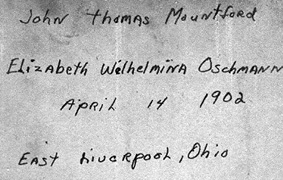 John Thomas Mountford
Elizabeth Wilhelmina Oschmann
April 14 1902
East Liverpool, Ohio